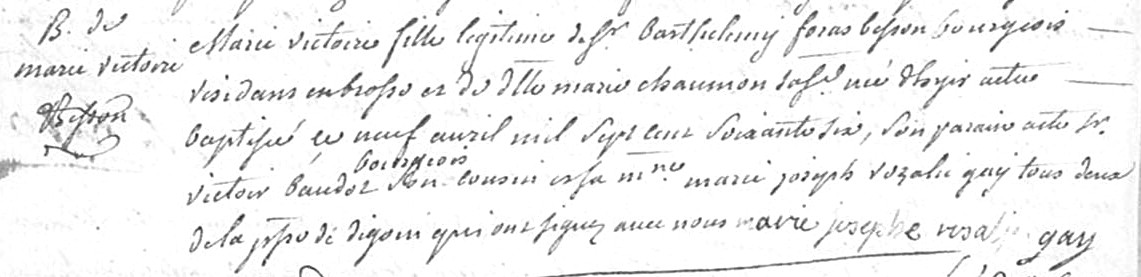 B. de
marie victoire
Besson
Marie victoire fille legitime de Sr. barthelemy foras besson bourgeois
residans en brosse et de dlle marie chaumon sa fe. née d'hyer a été
baptisée le neuf avril mil sept cent soixante six, son parain a été Sr.
victoir baudot bourgeois son cousin et sa mne marie joseph rozalie gay tous deux
de la psse de digoin qui ont signez avec nous marie josephe rosalie gay